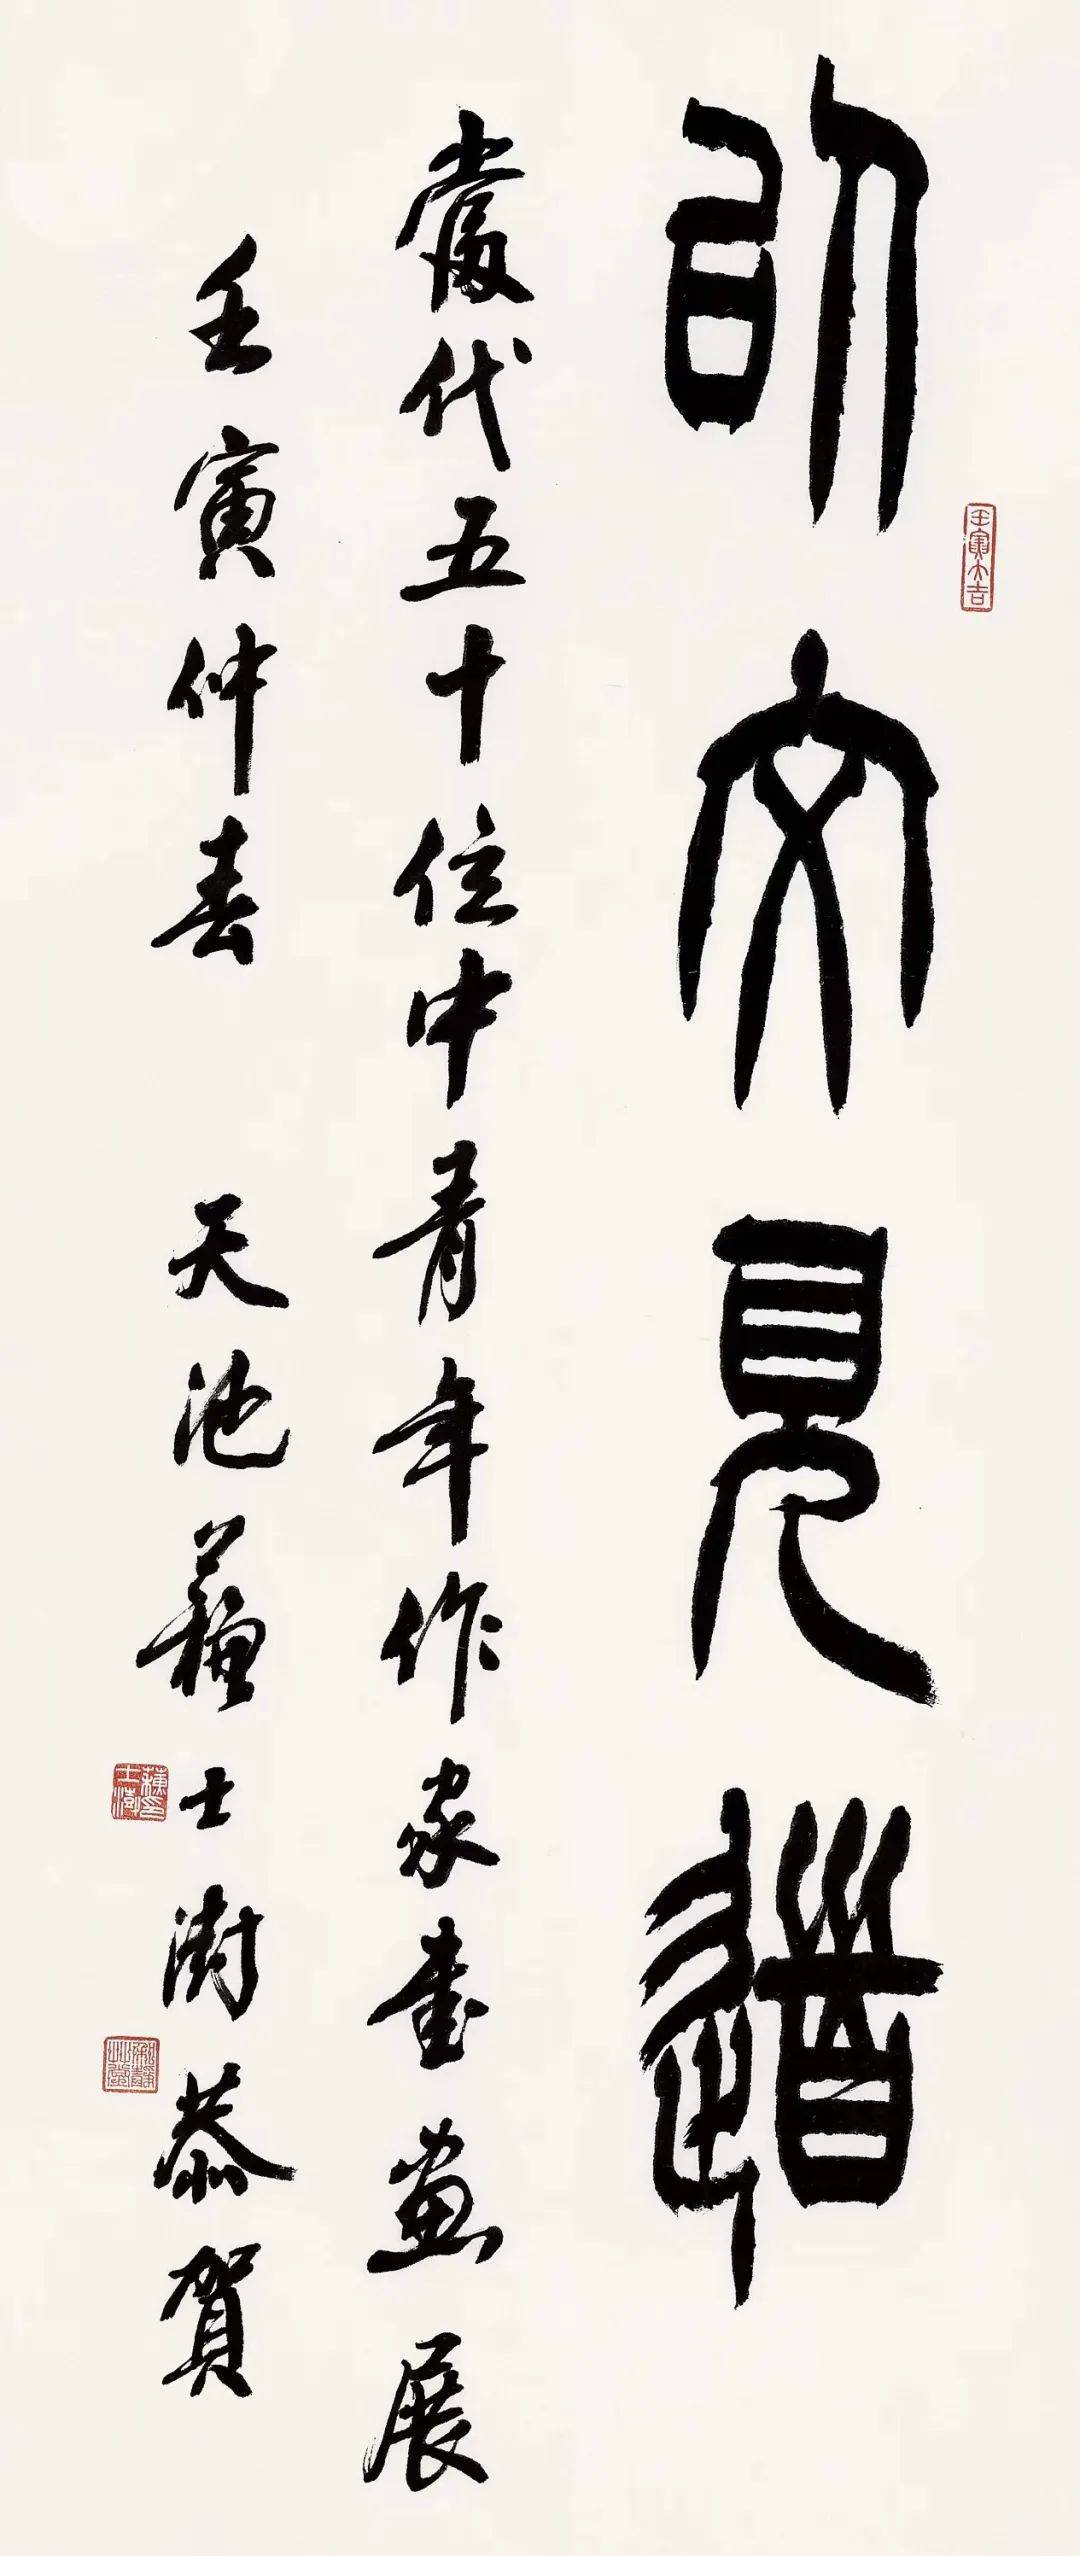 以文見道
壬寅大吉
當代五十位中青年作家書畫展
壬寅仲春 天池蘇士澍恭賀
蘇士澍印